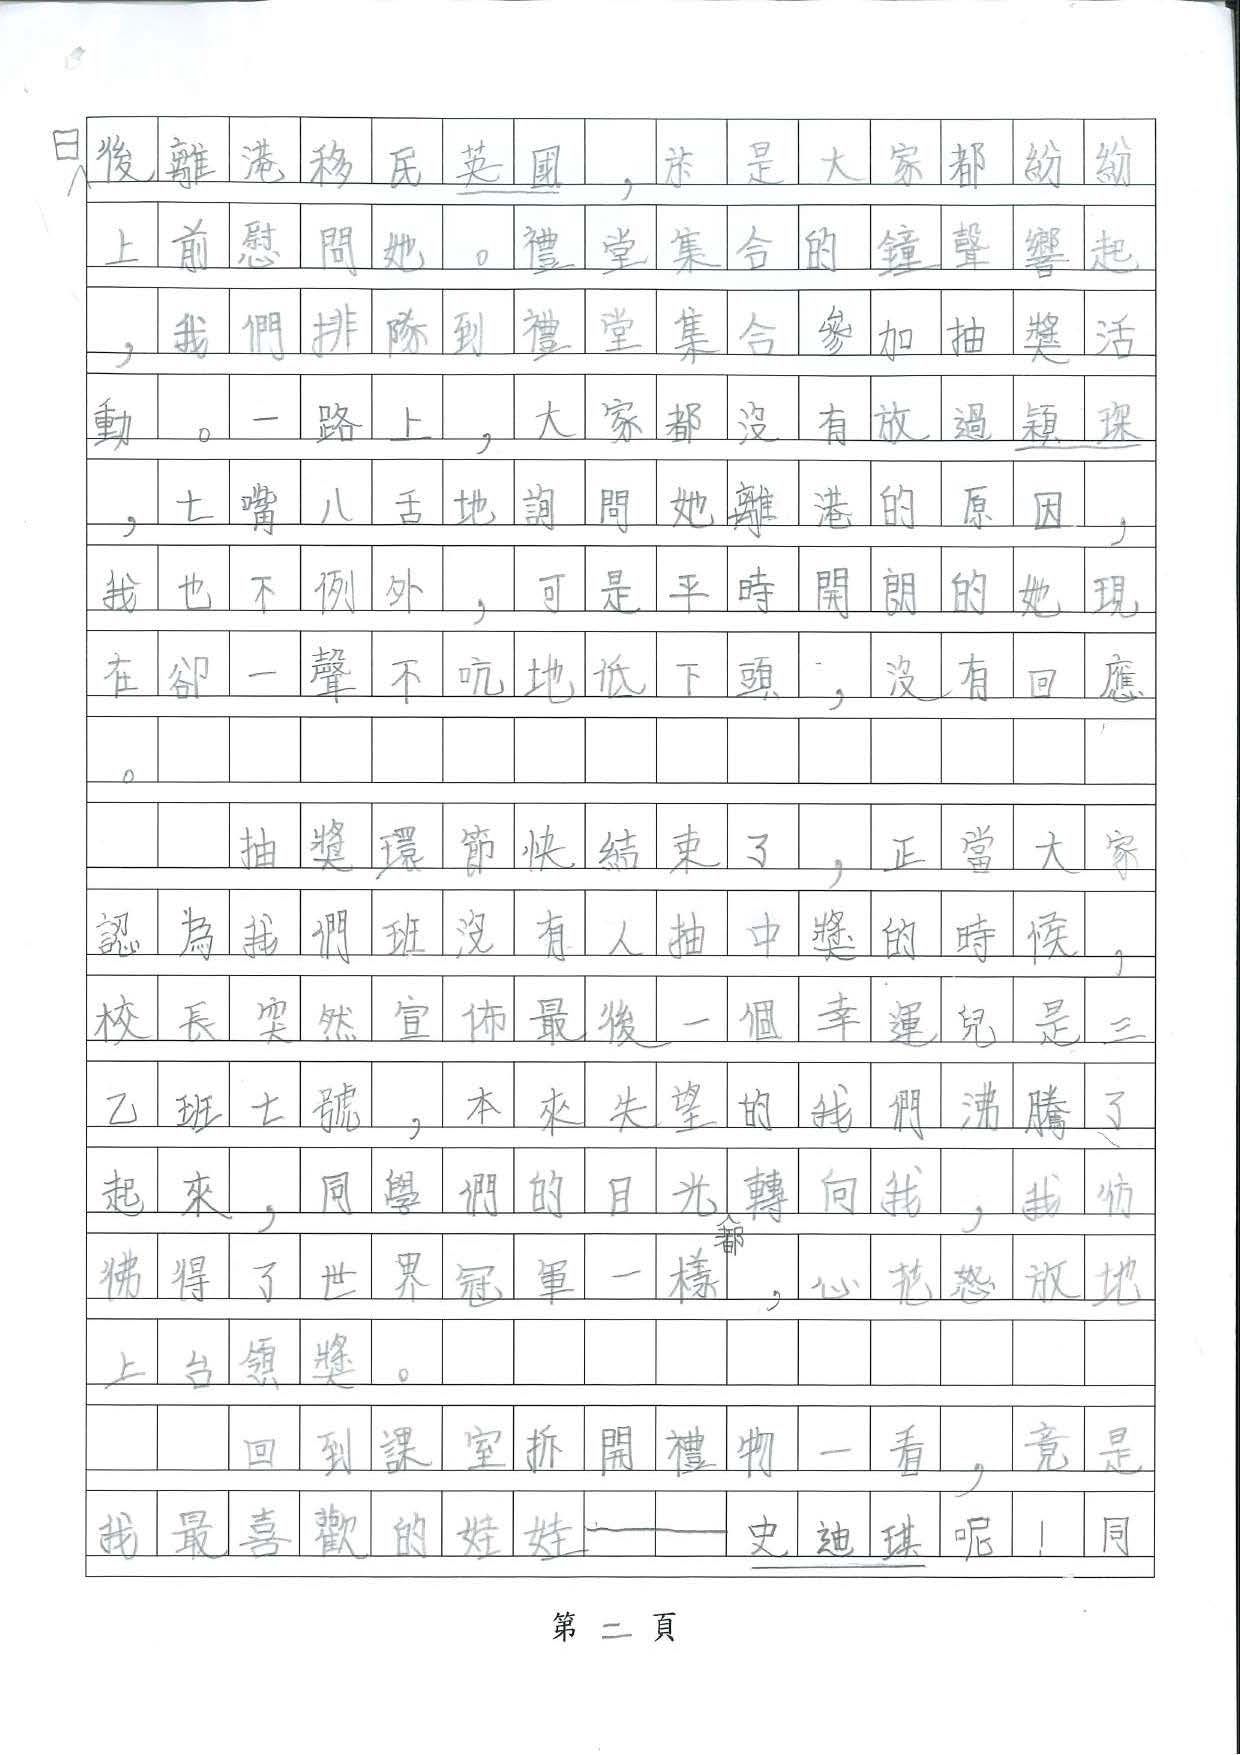 日後離港移民英國，於是大家都紛紛
上前慰問她。禮堂集合的鐘聲響起
，我們排隊到禮堂集合參加抽獎活
動。一路上，大家都沒有放過穎琛
，七嘴八舌地詢問她離港的原因，
我也不例外，可是平時開朗的她現
在卻一聲不吭地低下頭，沒有回應
。
抽獎環節快結束了，正當大家
認為我們班沒有人抽中獎的時候，
校長突然宣佈最後一個幸運兒是三
乙班七號，本來失望的我們沸騰了
起來，同學們的目光都轉向我，我彷
彿得了世界冠軍一樣，心花怒放地
上台領獎。
回到課室拆開禮物一看，竟是
我最喜歡的娃娃——史迪琪呢！同
第二頁